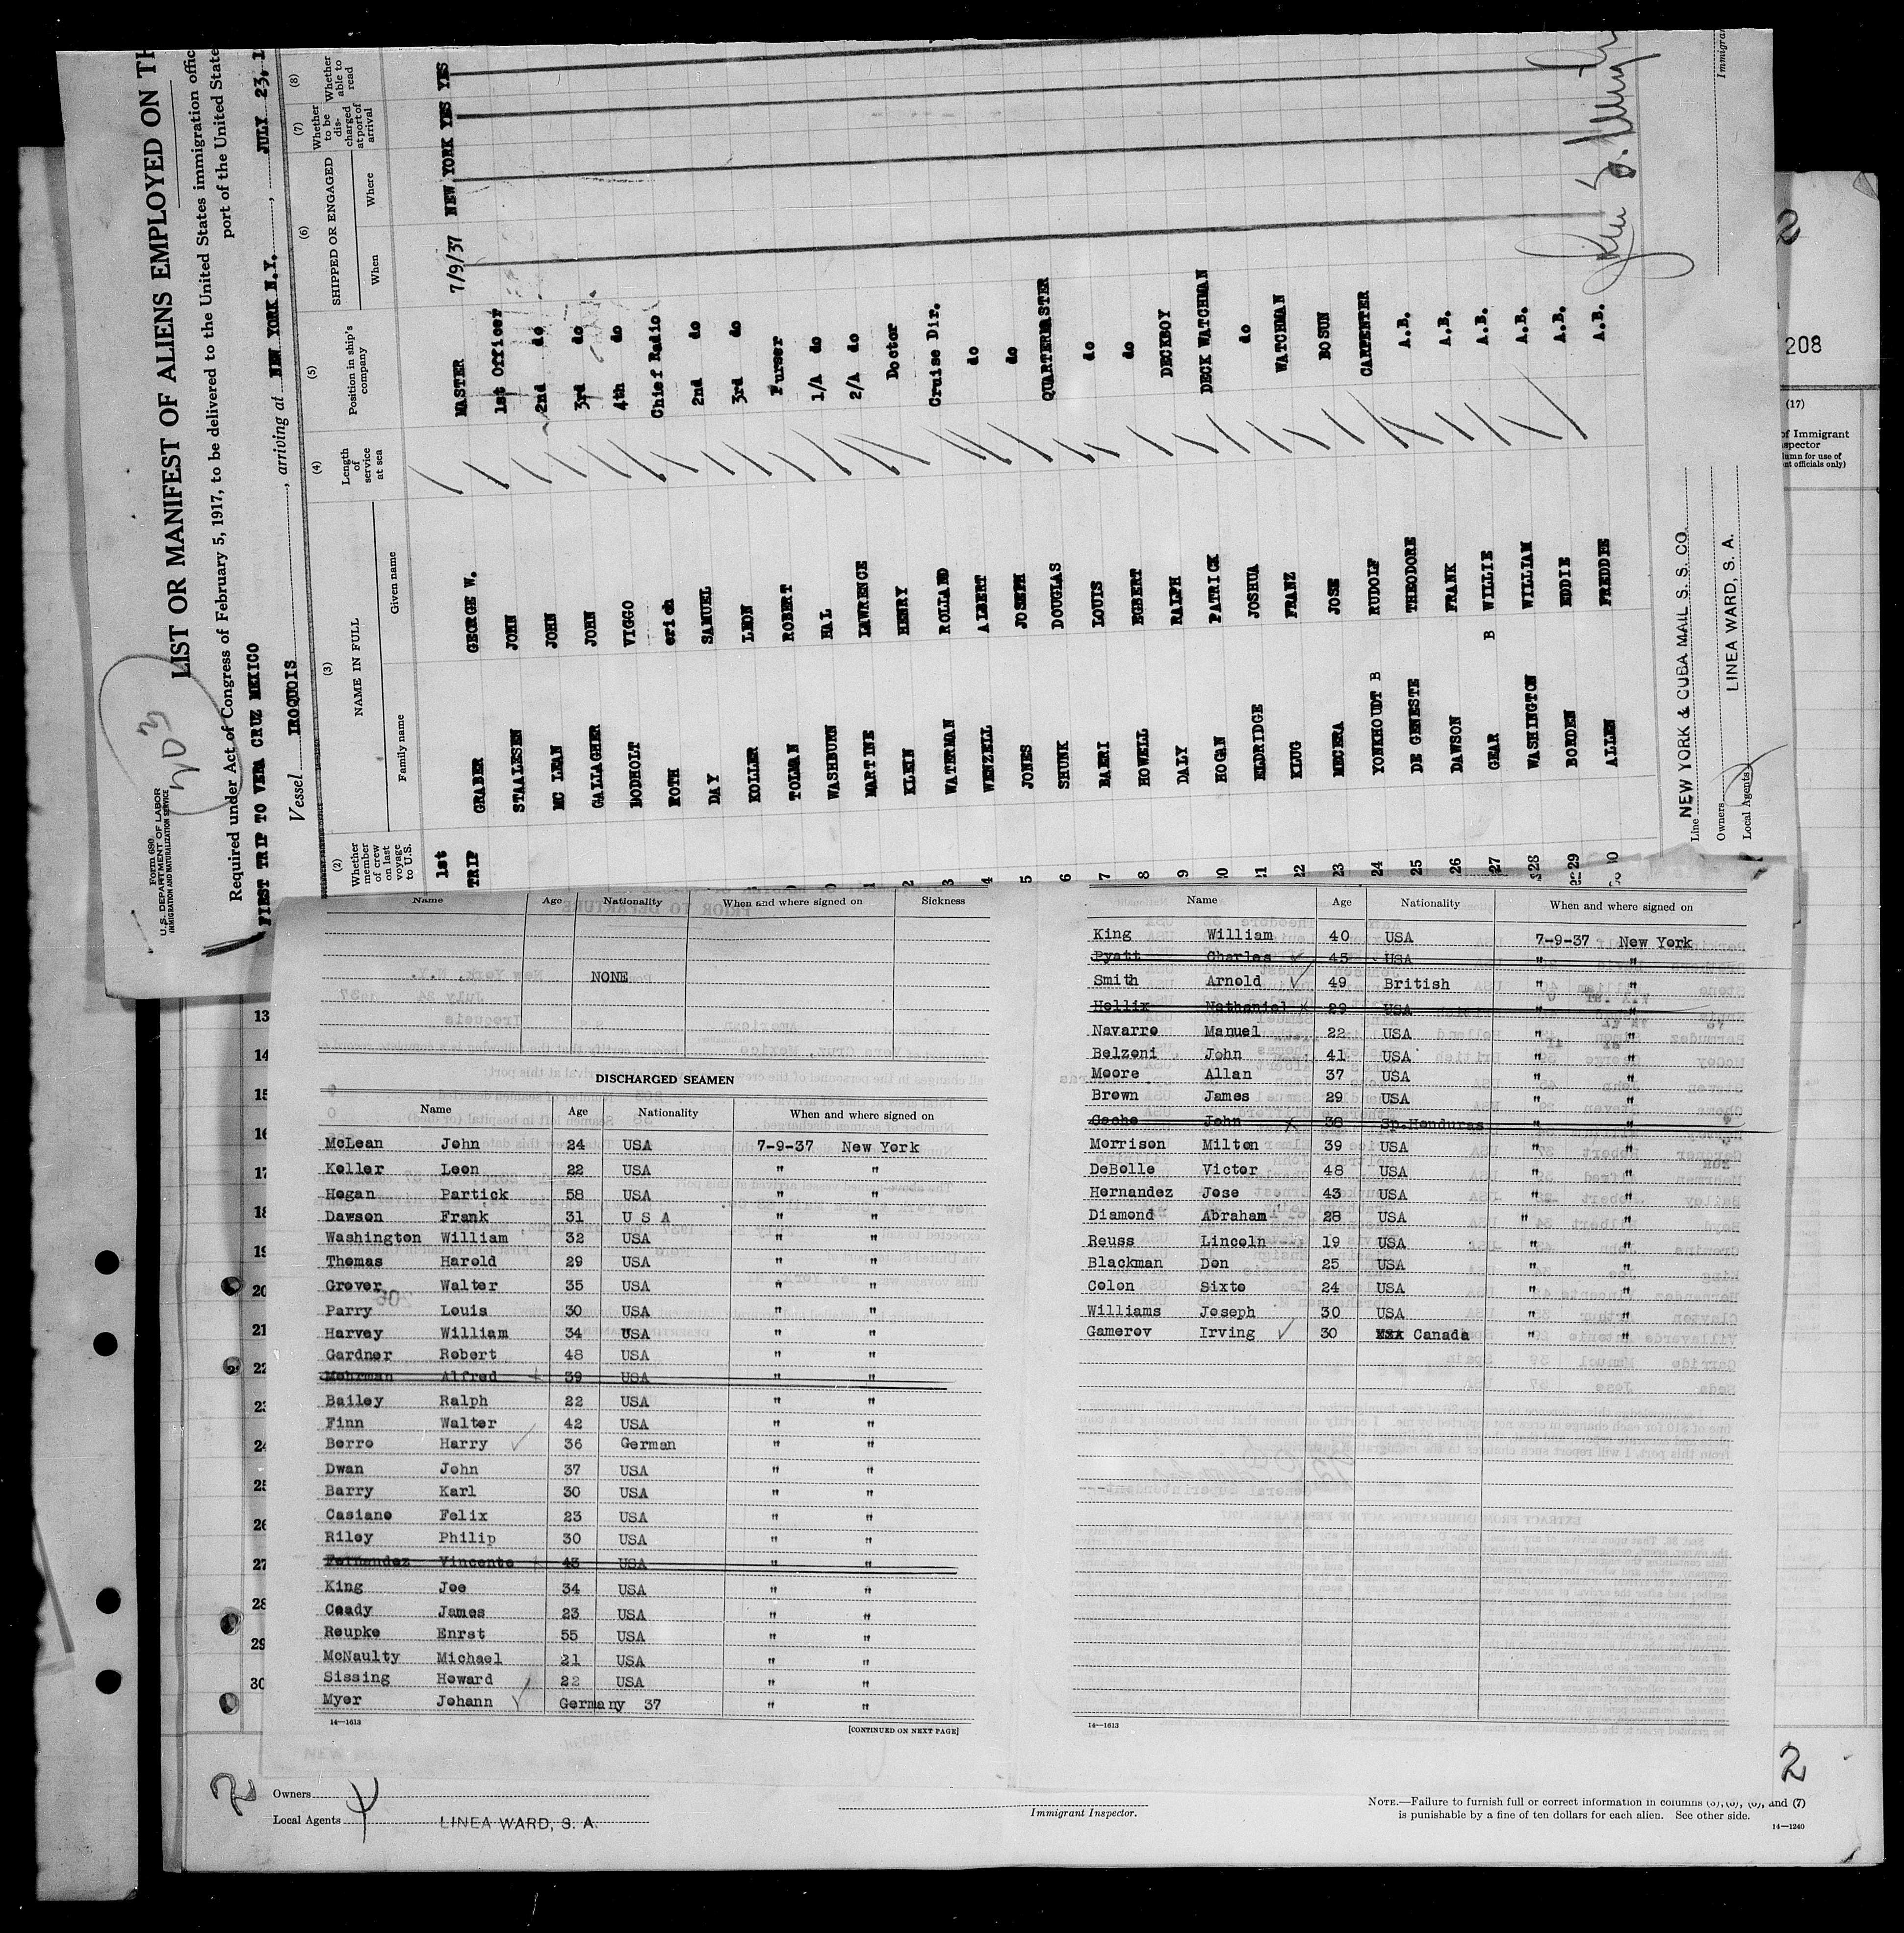 Form 680
U.S. DEPARTMENT OF LABOR
IMMIGRATION AND NATURALIZATION SERVICE
LIST OR MANIFEST OF ALIENS EMPLOYED ON TH
Required under Act of Congress of February 5, 1917, to be delivered to the United States immigration offic
port of the United State
FIRST TRIP TO VERA CRUZ MEXICO
Vessel IROQUOIS, arriving at NEW YORK N.Y., JULY 23, 1
(2) Whether member of crew on last voyage to U.S.
(3) NAME IN FULL
Family name Given name
(4) Length of service at sea
(5) Position in ship's company
(6) SHIPPED OR ENGAGED
When Where
(7) Whether to be discharged at port of arrival
(8) Whether able to read
1st TRIP GRABER GEORGE W. MASTER 7/9/37 NEW YORK YES YES
STAALESEN JOHN 1st Officer
MC LEAN JOHN 2nd do
GALLAGHER JOHN 3rd do
BODHOLT VIGGO 4th do
ROTH erich Chief Radio
DAY SAMUEL 2nd do
KOLLER LEON 3rd do
TOLMAN ROBERT Purser
WASHBURN HAL 1/A do
MARTINE LAWRENCE 2/A do
KLEIN HENRY Doctor
WATERMAN ROLLAND Cruise Dir.
WENZELL ALBERT do
JONES JOSEPH do
SHUNK DOUGLAS QUARTERMASTER
BAERI LOUIS do
HOWELL EGBERT do
DALY RALPH DECKBOY
20 HOGAN PATRICK DECK WATCHMAN
21 ELDRIDGE JOSHUA do
22 KLUG FRANZ WATCHMAN
23 MECERA JOSE BOSUN
24 YONKHOUDT B RUDOLF CARPENTER
25 DE GENESTE THEODORE A.B.
26 DAWSON FRANK A.B.
27 GEAR B WILLIE A.B.
28 WASHINGTON WILLIAM A.B.
29 BORDEN EDDIE A.B.
30 ALLEN FREDDEE A.B.
Line NEW YORK & CUBA MAIL S. S. CO.
Owners
LINEA WARD, S. A.
Local Agents
Immigran
2
208
(17)
of Immigrant
spector
lumn for use of
nt officials only)
Name Age Nationality When and where signed on Sickness
NONE
DISCHARGED SEAMEN
Name Age Nationality When and where signed on
McLean John 24 USA 7-9-37 New York
Koller Leon 22 USA " "
Hogan Partick 58 USA " "
Dawson Frank 31 U S A " "
Washington William 32 USA " "
Thomas Harold 29 USA " "
Grover Walter 35 USA " "
Parry Louis 30 USA " "
Harvey William 34 USA " "
Gardner Robert 48 USA " "
Mohrman Alfred 39 USA " "
Bailey Ralph 22 USA " "
Finn Walter 42 USA " "
Berro Harry 36 German " "
Dwan John 37 USA " "
Barry Karl 30 USA " "
Casiano Felix 23 USA " "
Riley Philip 30 USA " "
Fernandez Vincente 43 USA " "
King Joe 34 USA " "
Coady James 23 USA " "
Reupke Enrst 55 USA " "
McNaulty Michael 21 USA " "
Sissing Howard 22 USA " "
Myer Johann Germany 37 " "
14—1613
[CONTINUED ON NEXT PAGE]
Name Age Nationality When and where signed on
King William 40 USA 7-9-37 New York
Pyatt Charles 45 USA " "
Smith Arnold 49 British " "
Hollix Nathaniel 29 USA " "
Navarro Manuel 22 USA " "
Belzoni John 41 USA " "
Moore Allan 37 USA " "
Brown James 29 USA " "
Gocho John 38 Sp.Honduras " "
Morrison Milton 39 USA " "
DeBolle Victor 48 USA " "
Hernandez Jose 43 USA " "
Diamond Abraham 28 USA " "
Reuss Lincoln 19 USA " "
Blackman Don 25 USA " "
Colon Sixto 24 USA " "
Williams Joseph 30 USA " "
Gamerov Irving 30 Canada " "
14—1613
13
14
15
16
17
18
19
20
21
22
23
24
25
26
27
28
29
30
2
Owners
Local Agents LINEA WARD, S. A.
Immigrant Inspector.
NOTE.—Failure to furnish full or correct information in columns (3), (5), (6), and (7)
is punishable by a fine of ten dollars for each alien. See other side.
14—1240
2